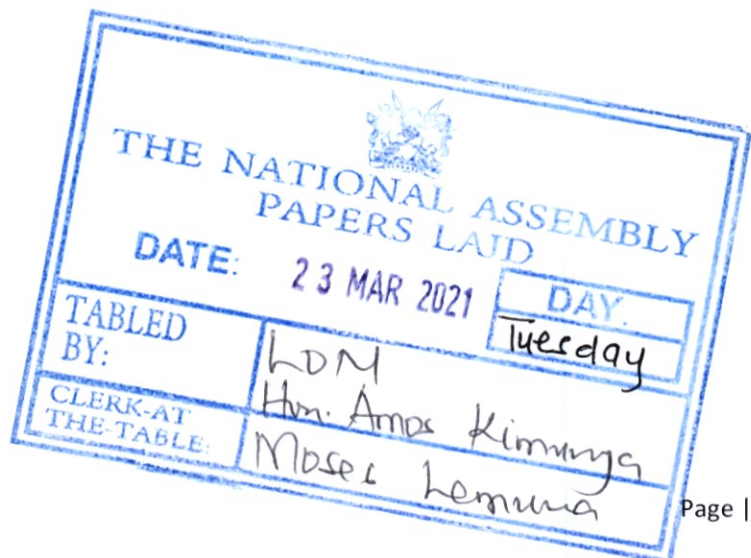 THE NATIONAL ASSEMBLY
PAPERS LAID
DATE: 23 MAR 2021
DAY.
Tuesday
TABLED BY:
LOM
Hon. Amos Kimunya
CLERK-AT THE-TABLE:
Moses Lemuna
Page |